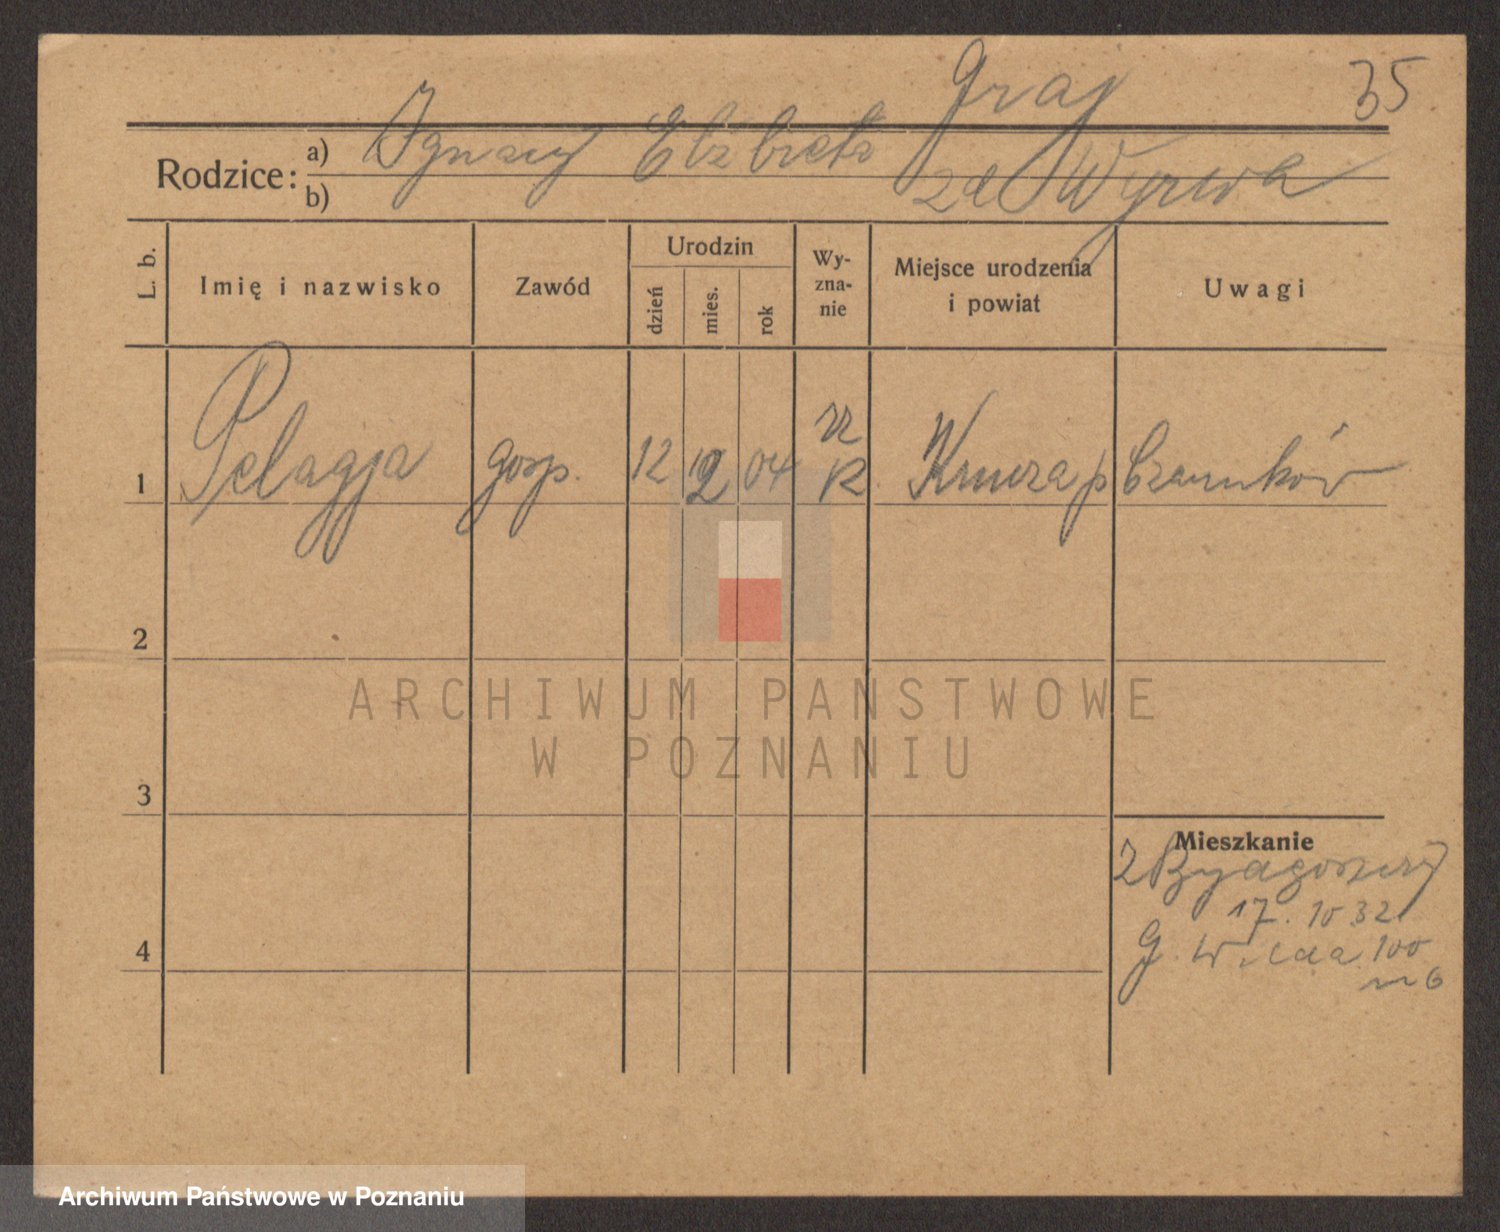 Graj 35
Rodzice: a) Ignacy Elżbieta
b) zd Wyrwa
L. b. Imię i nazwisko Zawód Urodzin dzień mies. rok Wy-zna-nie Miejsce urodzenia i powiat Uwagi
1 Pelagja gosp. 12 12 04 rz k Krucza p Czarnków
2
ARCHIWUM PAŃSTWOWE
W POZNANIU
3
Mieszkanie
Z Bydgoszczy
17. 10 32
4
G. Wilda 100
m 6
Archiwum Państwowe w Poznaniu